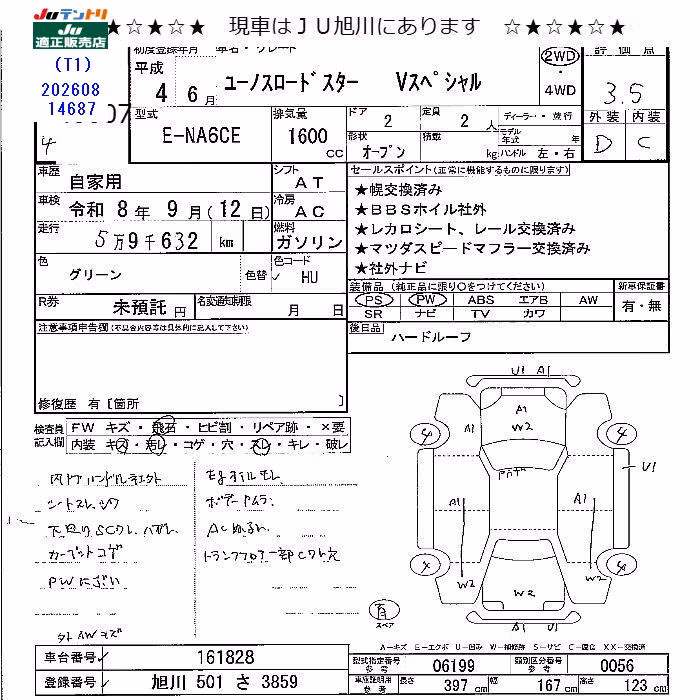 Juテントリ
JU適正販売店
★☆★☆★ 現車はJU旭川にあります ☆★☆★☆★
(T1)
202608
14687
初度登録年月 車名・グレード
平成 4年 6月
ユーノスロードスター Vスペシャル
2WD
・
4WD
評価点
3.5
外装 内装
D C
型式
E-NA6CE
排気量
1600
cc
ドア 2
定員 2人
形状 オープン
積載 kg
ディーラー・並行
モデル年式 年
ハンドル 左・右
車歴 自家用
シフト AT
車検 令和 8年 9月(12日)
冷房 AC
走行 5万9千632 km
燃料 ガソリン
色 グリーン
色替
色コード HU
R券 未預託 円
名変通知期限 月 日
セールスポイント(正常に機能するものに限ります)
★幌交換済み
★BBSホイル社外
★レカロシート、レール交換済み
★マツダスピードマフラー交換済み
★社外ナビ
装備品(純正品に限り○をつけてください)
PS PW ABS エアB AW
SR ナビ TV カワ
新車保証書
有・無
後日品
ハードルーフ
注意事項申告欄(不具合内容等は具体的に記入して下さい)
修復歴 有[箇所 ]
検査員記入欄
FW キズ・飛石・ヒビ割・リペア跡・×要
内装 キズ・汚れ・コゲ・穴・スレ・キレ・破レ
シートスレ、シワ
カーペットコゲ
PWにぶい
外AWキズ
ボデーPムラ
ACぬるい
U1 A1
A1
W2
A1
A1
A1
U1
W2
W2
W2
A1
A1 U1
4
4
4
有
スペア
A-キズ E-エクボ U-凹み W-補修跡 S-サビ C-腐食 XX-交換済
車台番号 161828
登録番号 旭川 501 さ 3859
型式指定番号 参考 06199
類別区分番号 参考 0056
車庫証明用 参考
長さ 397 cm
幅 167 cm
高さ 123 cm